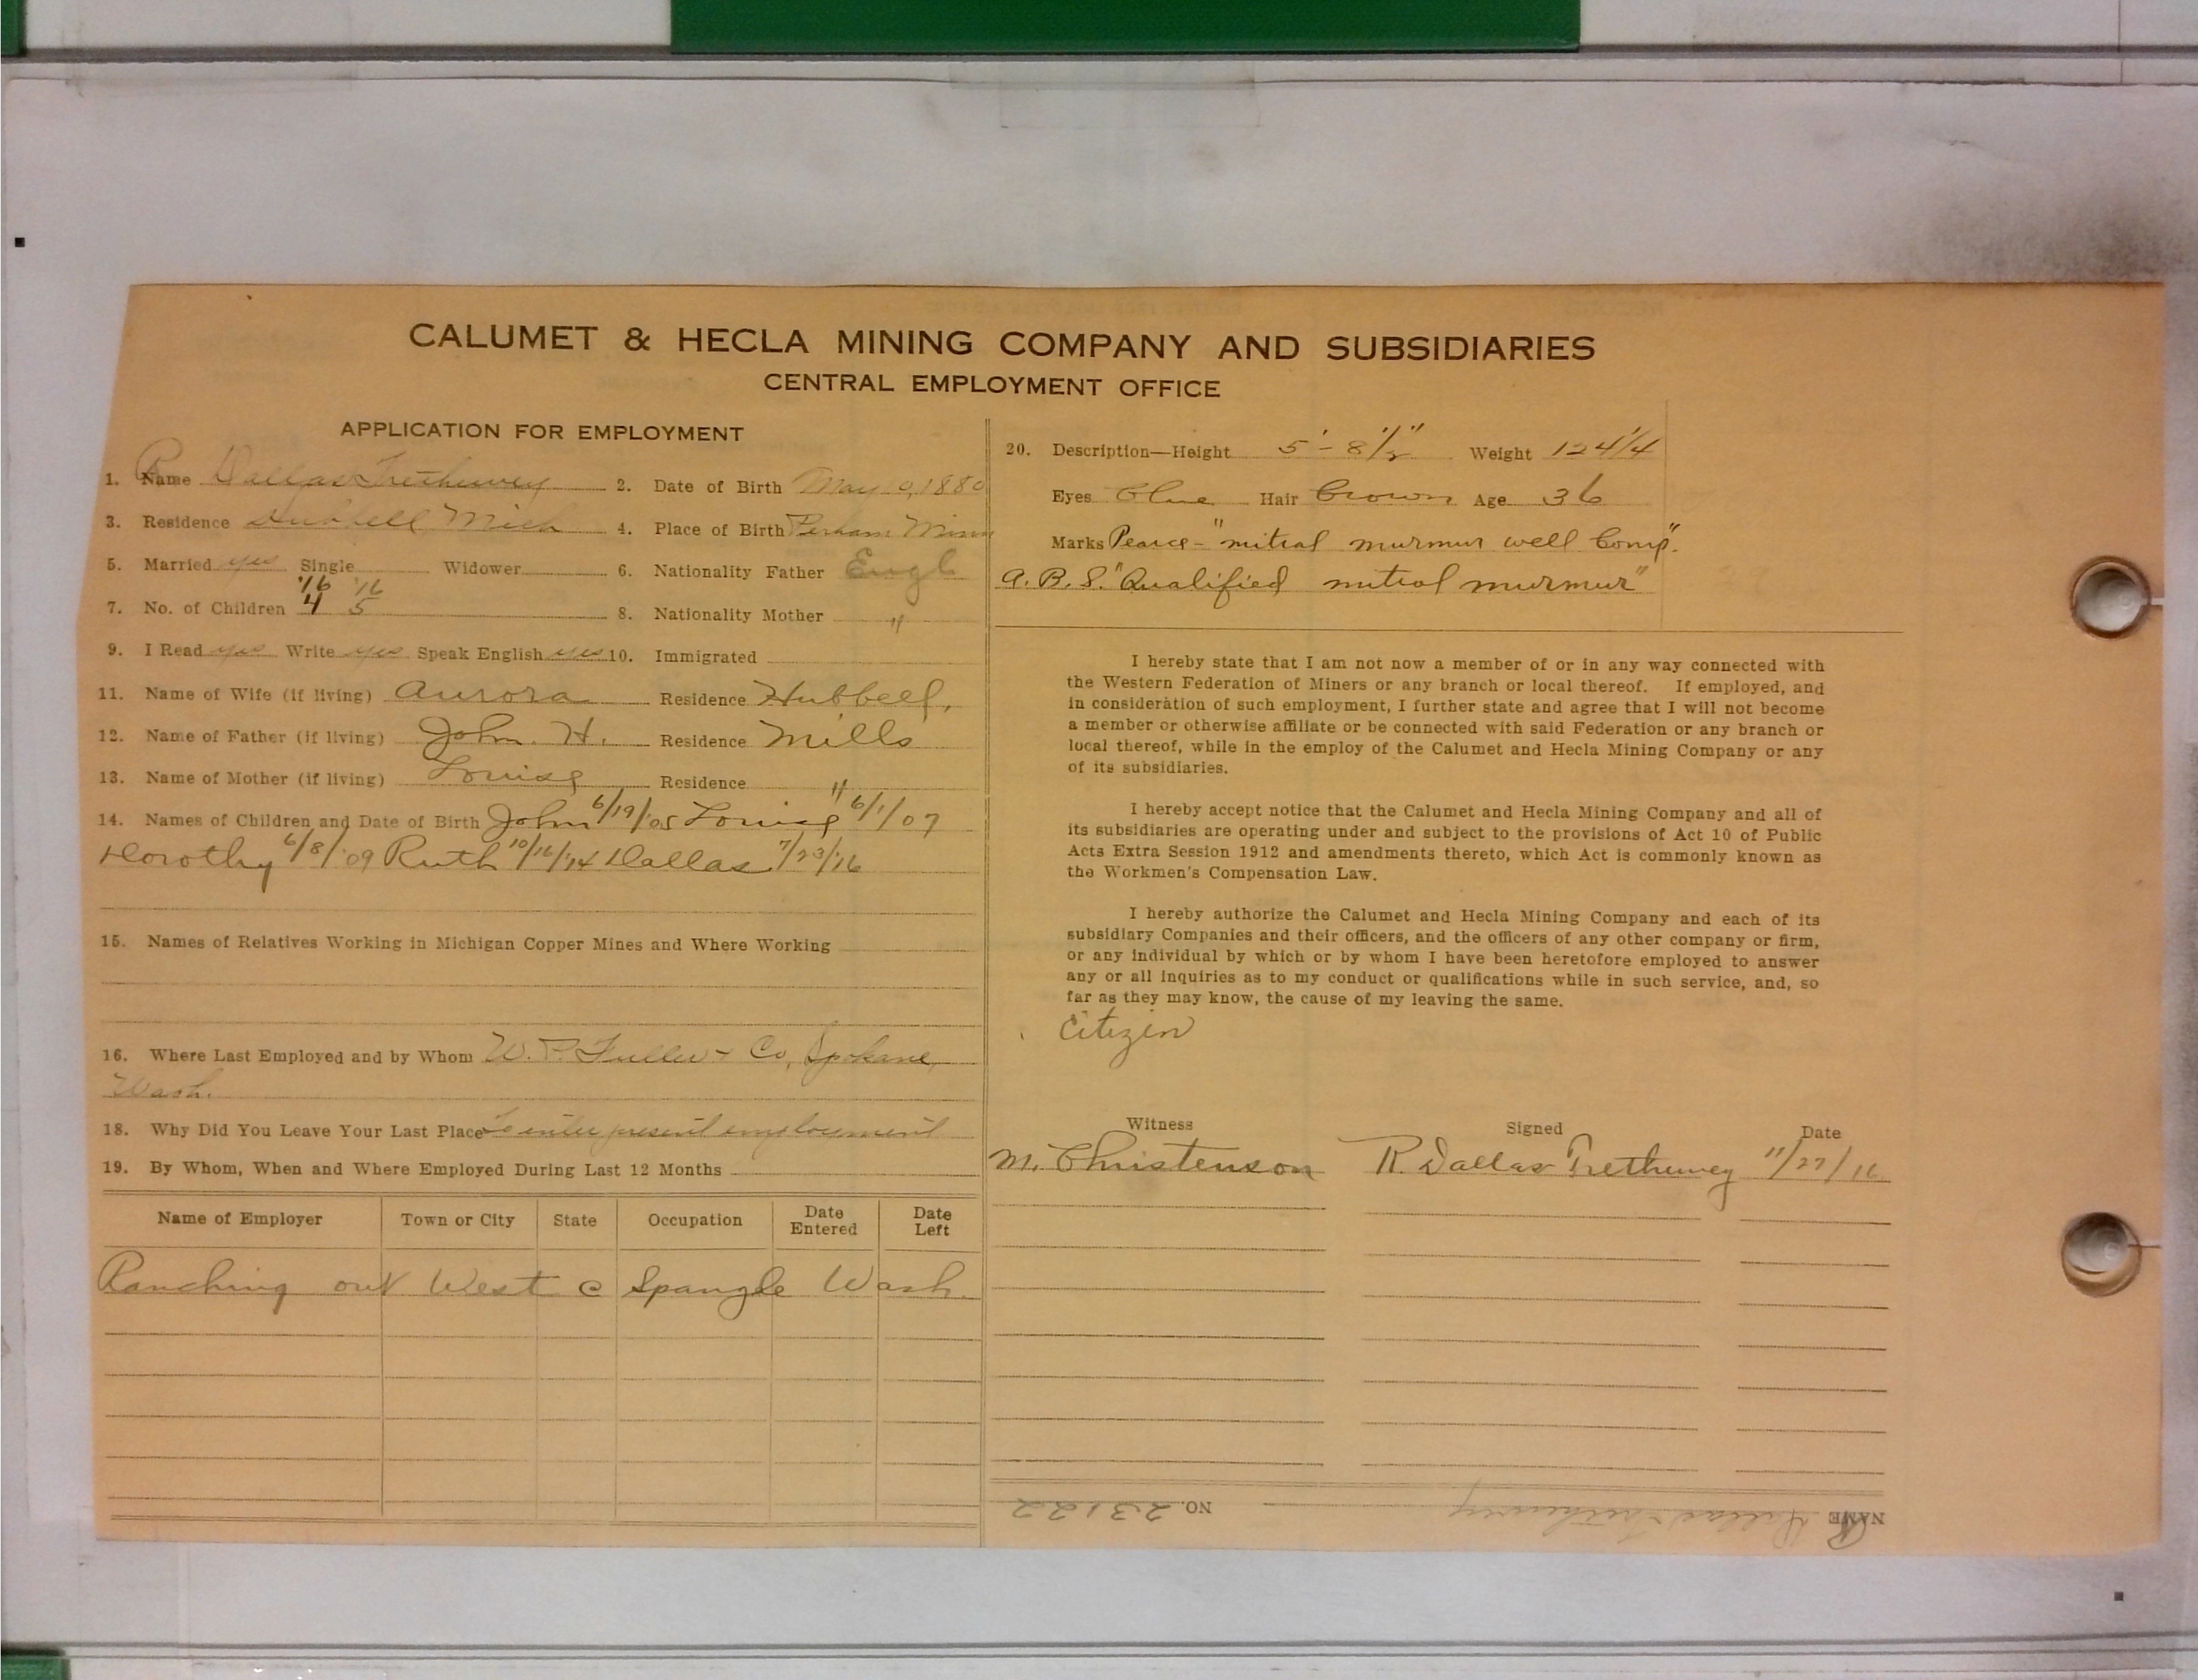 CALUMET & HECLA MINING COMPANY AND SUBSIDIARIES
CENTRAL EMPLOYMENT OFFICE
APPLICATION FOR EMPLOYMENT
1. Name R Dallas Trethewey 2. Date of Birth May 9, 1880
3. Residence Hubbell Mich 4. Place of Birth Perham Minn
5. Married yes Single Widower 6. Nationality Father Engl
'16 '16
7. No. of Children 4 5 8. Nationality Mother "
9. I Read yes Write yes Speak English yes 10. Immigrated
11. Name of Wife (if living) Aurora Residence Hubbell,
12. Name of Father (if living) John H. Residence Mills
13. Name of Mother (if living) Louise Residence "
14. Names of Children and Date of Birth John 6/19/05 Louise 6/1/07
Dorothy 6/8/09 Ruth 10/16/14 Dallas 7/23/16
15. Names of Relatives Working in Michigan Copper Mines and Where Working
16. Where Last Employed and by Whom W. P. Fuller & Co, Spokane,
Wash.
18. Why Did You Leave Your Last Place To enter present employment
19. By Whom, When and Where Employed During Last 12 Months
Name of Employer Town or City State Occupation Date Entered Date Left
Ranching out West @ Spangle Wash.
20. Description—Height 5' - 8 1/2" Weight 124 1/4
Eyes Blue Hair Brown Age 36
Marks Pearce - "mitral murmur well Comp".
A. B. S. "Qualified mitral murmur"
I hereby state that I am not now a member of or in any way connected with
the Western Federation of Miners or any branch or local thereof. If employed, and
in consideration of such employment, I further state and agree that I will not become
a member or otherwise affiliate or be connected with said Federation or any branch or
local thereof, while in the employ of the Calumet and Hecla Mining Company or any
of its subsidiaries.
I hereby accept notice that the Calumet and Hecla Mining Company and all of
its subsidiaries are operating under and subject to the provisions of Act 10 of Public
Acts Extra Session 1912 and amendments thereto, which Act is commonly known as
the Workmen's Compensation Law.
I hereby authorize the Calumet and Hecla Mining Company and each of its
subsidiary Companies and their officers, and the officers of any other company or firm,
or any individual by which or by whom I have been heretofore employed to answer
any or all inquiries as to my conduct or qualifications while in such service, and, so
far as they may know, the cause of my leaving the same.
Citizen
Witness Signed Date
M. Christenson R. Dallas Trethewey 11/27/16
NAME R Dallas Trethewey NO. 23122